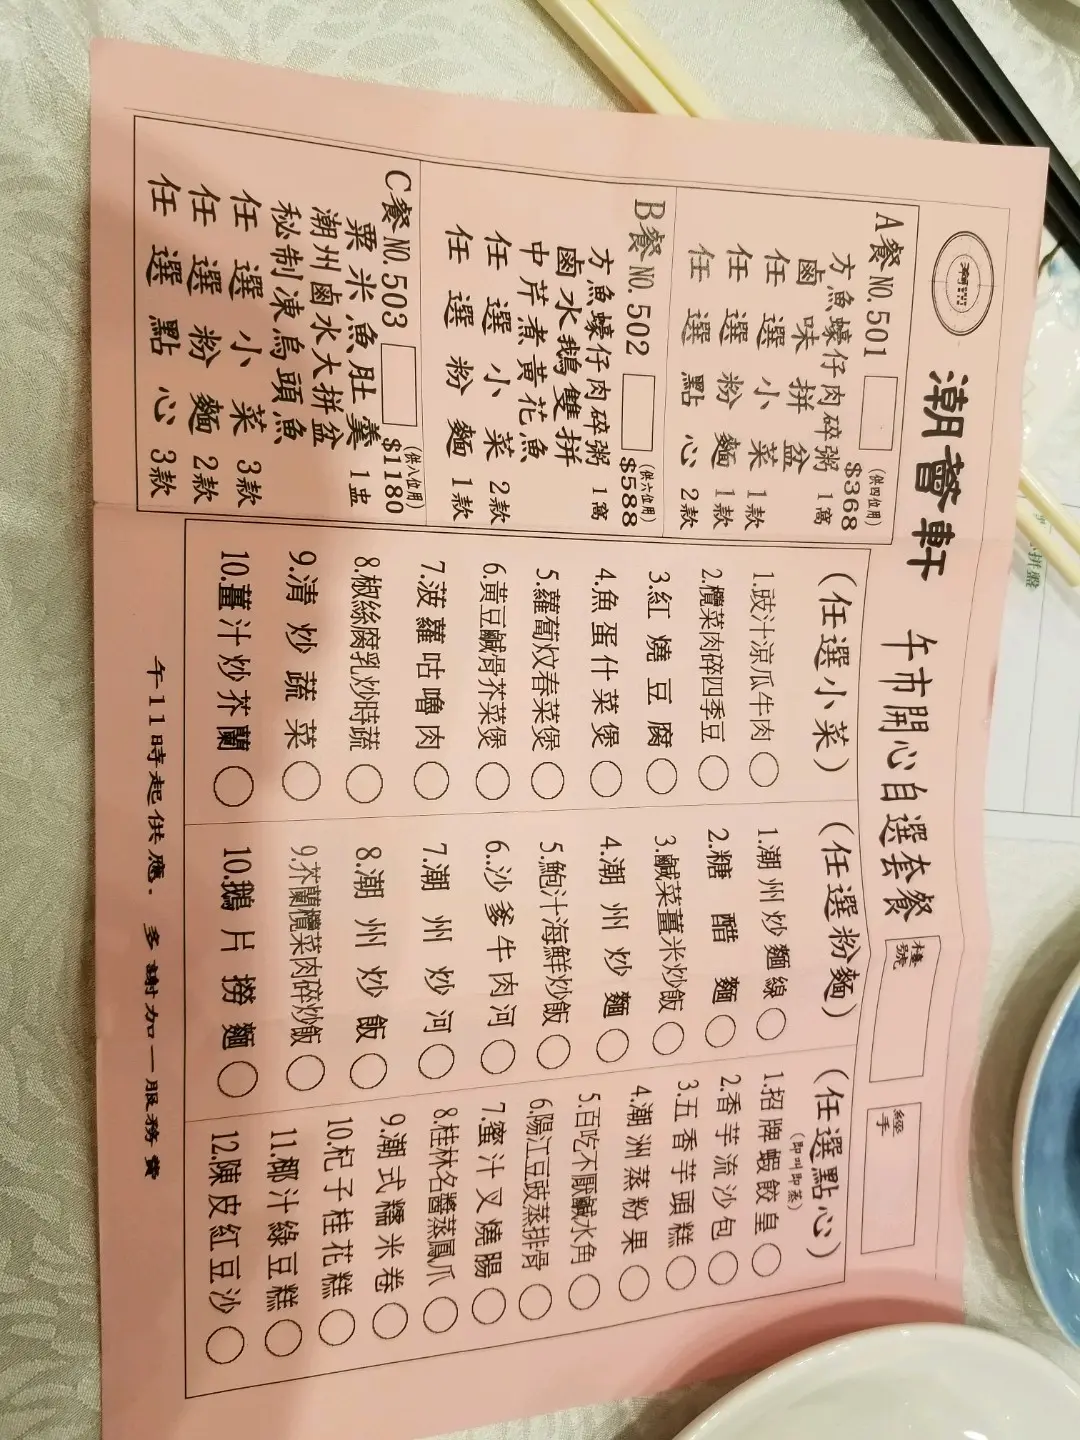 潮薈軒 午市開心自選套餐
檯號
經手
A餐NO.501
(供四位用)
$368
方魚蠔仔肉碎粥 1窩
鹵味拼盆
任選小菜 1款
任選粉麵 1款
任選點心 2款
B餐NO.502
(供六位用)
$588
方魚蠔仔肉碎粥 1窩
鹵水鵝雙拼
中芹煮黃花魚
任選小菜 2款
任選粉麵 1款
C餐NO.503
(供八位用)
$1180
粟米魚肚羹 1盅
潮州鹵水大拼盆
秘制凍烏頭魚
任選小菜 3款
任選粉麵 2款
任選點心 3款
(任選小菜)
1.豉汁涼瓜牛肉
2.欖菜肉碎四季豆
3.紅燒豆腐
4.魚蛋什菜煲
5.蘿蔔炆春菜煲
6.黃豆鹹骨芥菜煲
7.菠蘿咕嚕肉
8.椒絲腐乳炒時蔬
9.清炒蔬菜
10.薑汁炒芥蘭
(任選粉麵)
1.潮州炒麵線
2.糖醋麵
3.鹹菜薑米炒飯
4.潮州炒麵
5.鮑汁海鮮炒飯
6.沙爹牛肉河
7.潮州炒河
8.潮州炒飯
9.芥蘭欖菜肉碎炒飯
10.鵝片撈麵
(任選點心)
(即叫即蒸)
1.招牌蝦餃皇
2.香芋流沙包
3.五香芋頭糕
4.潮洲蒸粉果
5.百吃不厭鹹水角
6.陽江豆豉蒸排骨
7.蜜汁叉燒腸
8.桂林名醬蒸鳳爪
9.潮式糯米卷
10.杞子桂花糕
11.椰汁綠豆糕
12.陳皮紅豆沙
午11時起供應. 多謝加一服務費
拼盤